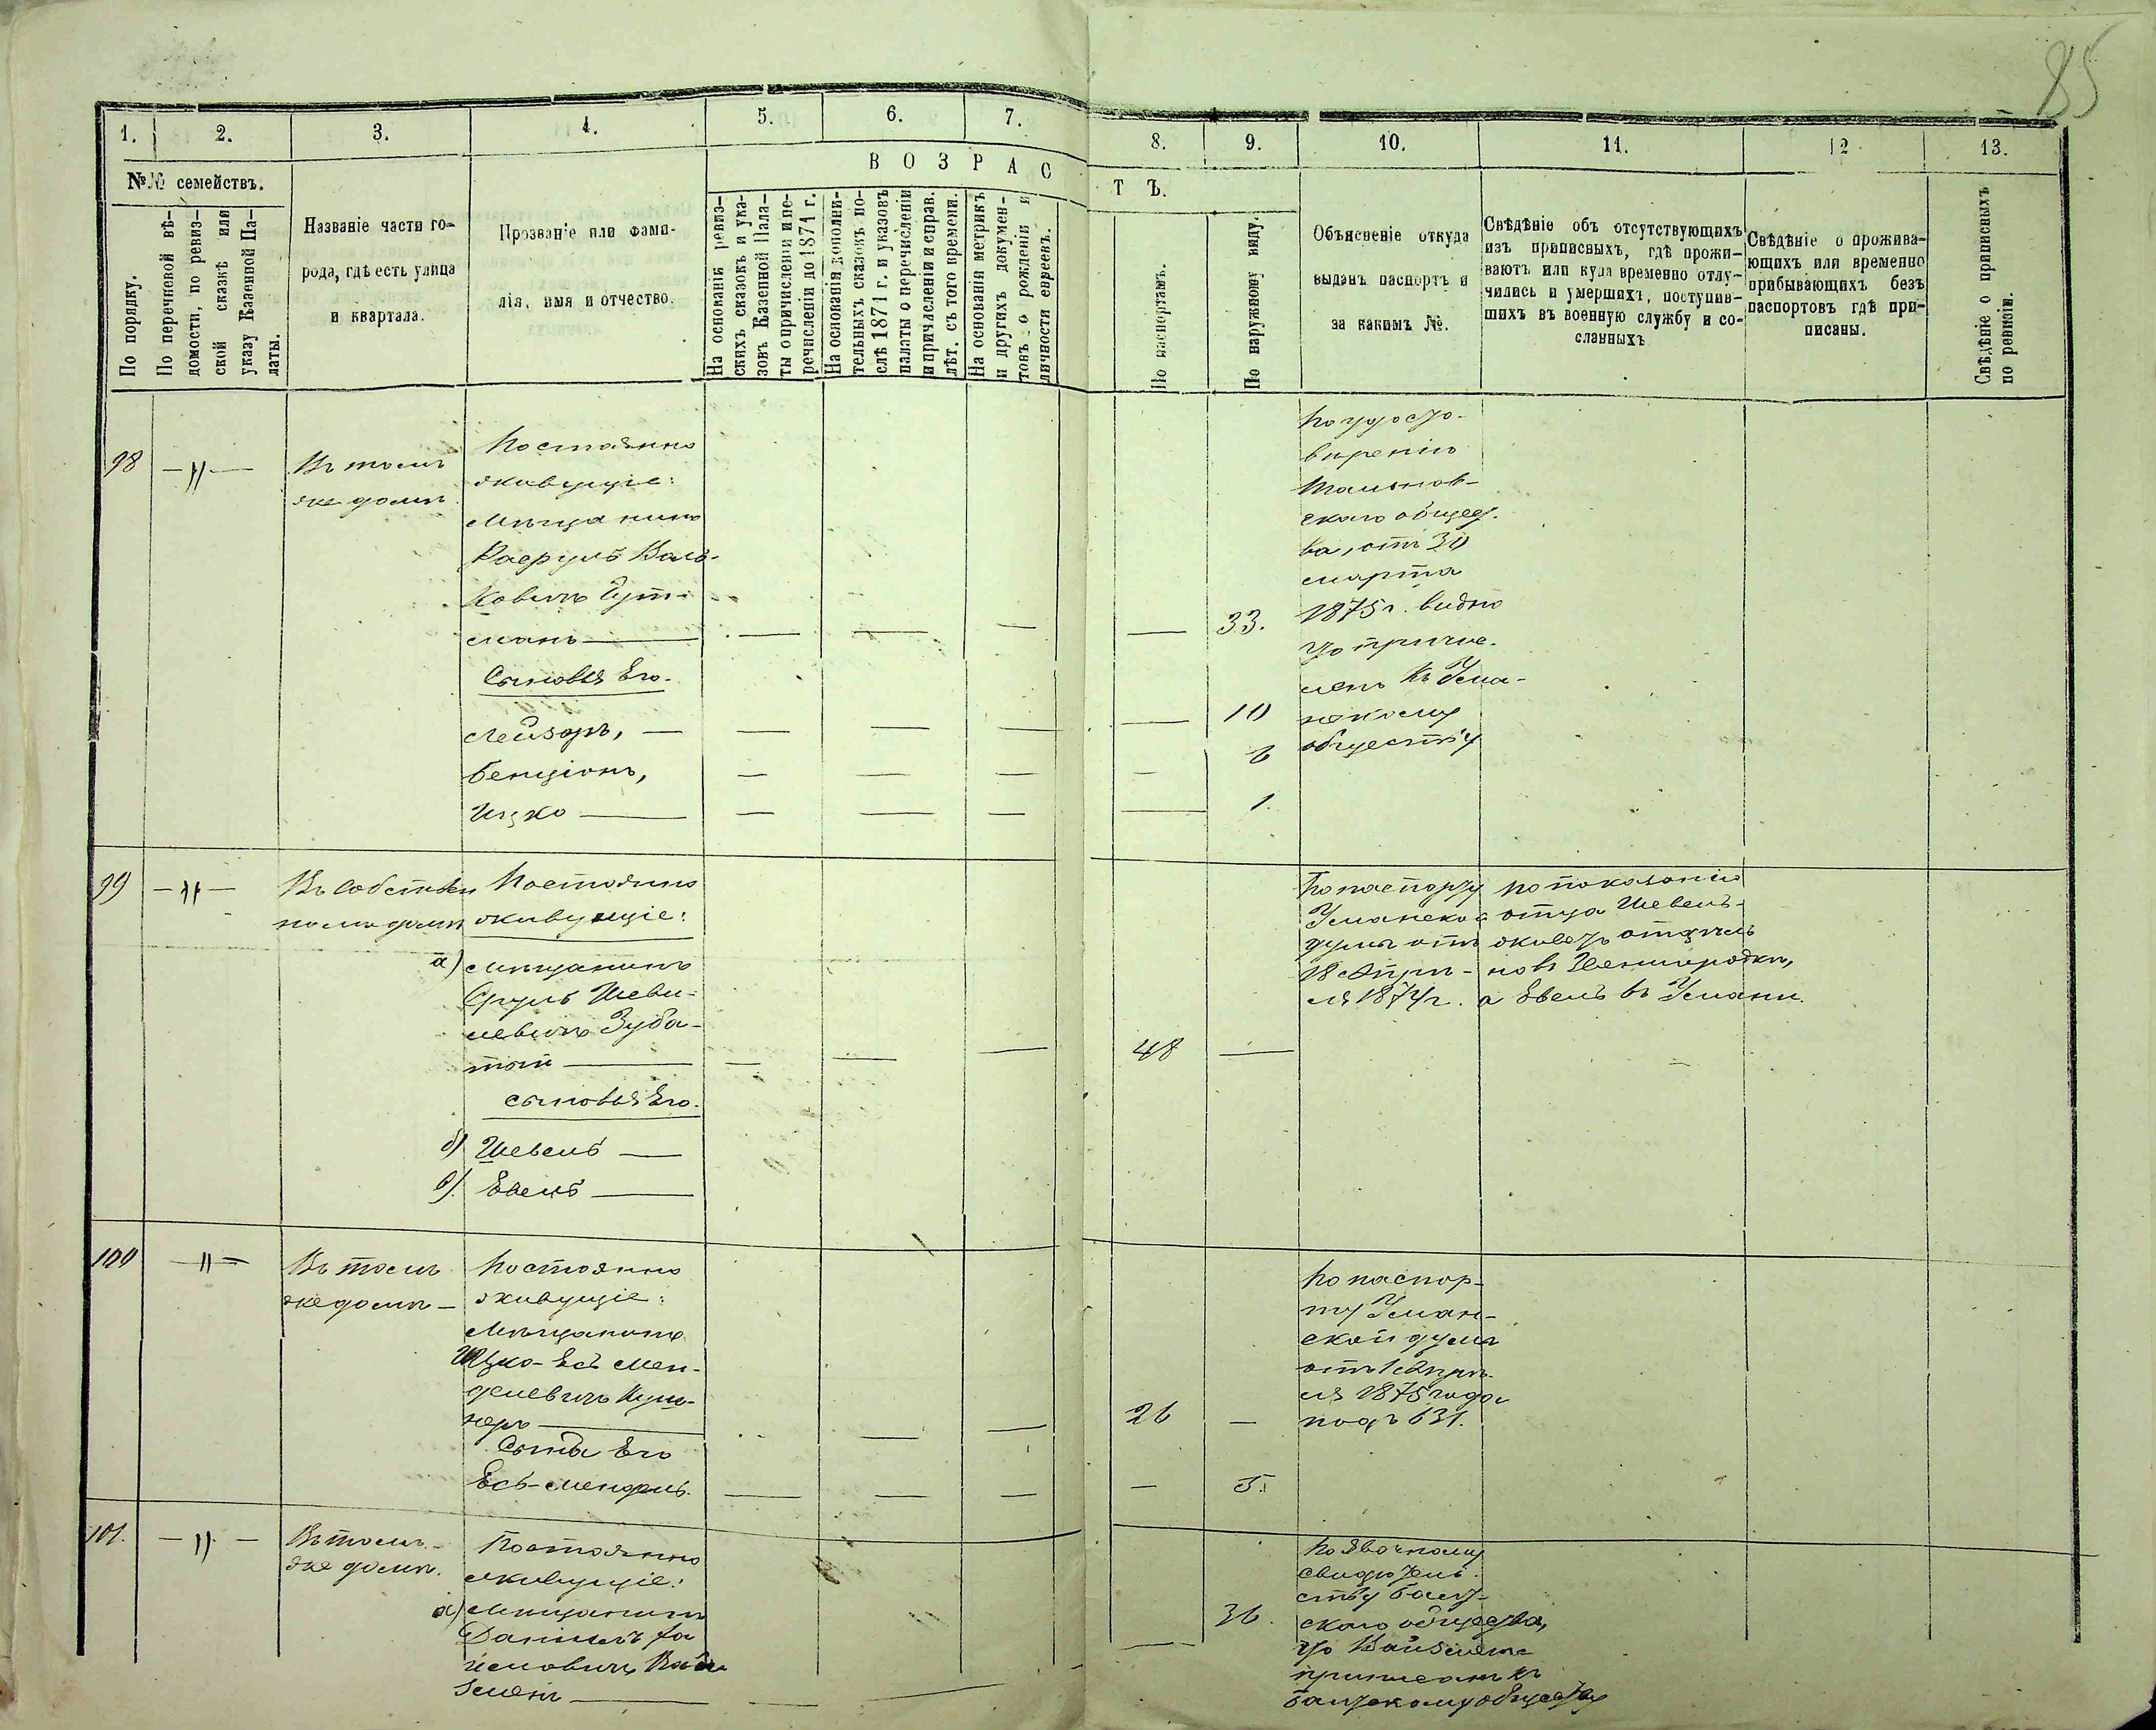 85
1.
2.
3.
4.
5.
6.
7.
8.
9.
10.
11.
12
13.
№№ семействъ.
По порядку.
По перечневой вѣ-
домости, по ревиз-
ской сказкѣ или
указу Казенной Па-
латы.
Названіе части го-
рода, гдѣ есть улица
и квартала.
Прозваніе или фами-
лія, имя и отчество.
ВОЗРАС
ТЪ.
На основаніи ревиз-
скихъ сказокъ и ука-
зовъ Казенной Пала-
ты о причисленіи и пе-
речисленіи до 1871 г.
На основаніи дополни-
тельныхъ сказокъ по-
слѣ 1871 г. и указовъ
палаты о перечисленіи
и причисленіи и справ.
лѣт. съ того времени.
На основаніи метрикъ
и другихъ докумен-
товъ о рожденіи и
личности евреевъ.
По паспортамъ.
По наружному виду.
Объясненіе откуда
выданъ паспортъ и
за какимъ №.
Свѣдѣніе объ отсутствующихъ
изъ приписныхъ, гдѣ прожи-
ваютъ или куда временно отлу-
чились и умершихъ, поступив-
шихъ въ военную службу и со-
сланныхъ
Свѣдѣніе о прожива-
ющихъ или временно
прибывающихъ безъ
паспортовъ гдѣ при-
писаны.
Свѣдѣніе о приписныхъ
по ревизіи.
98
— 〃 —
Въ томъ
же домѣ
Постоянно
живущіе:
Мѣщанинъ
Расруль Воль-
ковичъ Гут-
манъ — 33.
Сыновья Его.
Лейзоръ, — 10
Бенціонъ, 6
Ицко — 1.
По удосто-
вѣренію
Тальнов-
скаго общест-
ва, отъ 30
марта
1875 г. видно
что причис-
ленъ къ Ума-
нскому
обществу
99
— 〃 —
Въ собствен
номъ домѣ
Постоянно
живущіе:
а) Мѣщанинъ
Сруль Шеви-
левичъ Зуба-
тый — 48 —
Сыновья Его.
б) Шевель —
в). Евель —
По паспорту
Уманской
думы отъ
18 Апрѣ-
ля 1874 г.
По показанію
отца Шевель
живетъ отдѣль
но въ Звенигородкѣ,
а Евель въ Умани.
100
— 〃 —
Въ томъ
же домѣ —
Постоянно
живущіе:
Мѣщанинъ
Ицко-Есь Мен-
делевичъ Куш-
неръ — 26 —
Сынъ Его
Есь-Мендель. — 5.
По паспор-
ту Уман-
ской думы
отъ 1 Апрѣ-
ля 1875 года
подъ 631.
101.
— 〃 —
Въ томъ
же домѣ.
Постоянно
живущіе:
а) Мѣщанинъ
Даніилъ
36.
По явочному
свидѣтель-
ству Балт-
скаго общества,
что Вайзменъ
приписанъ къ
Балтскому обществу